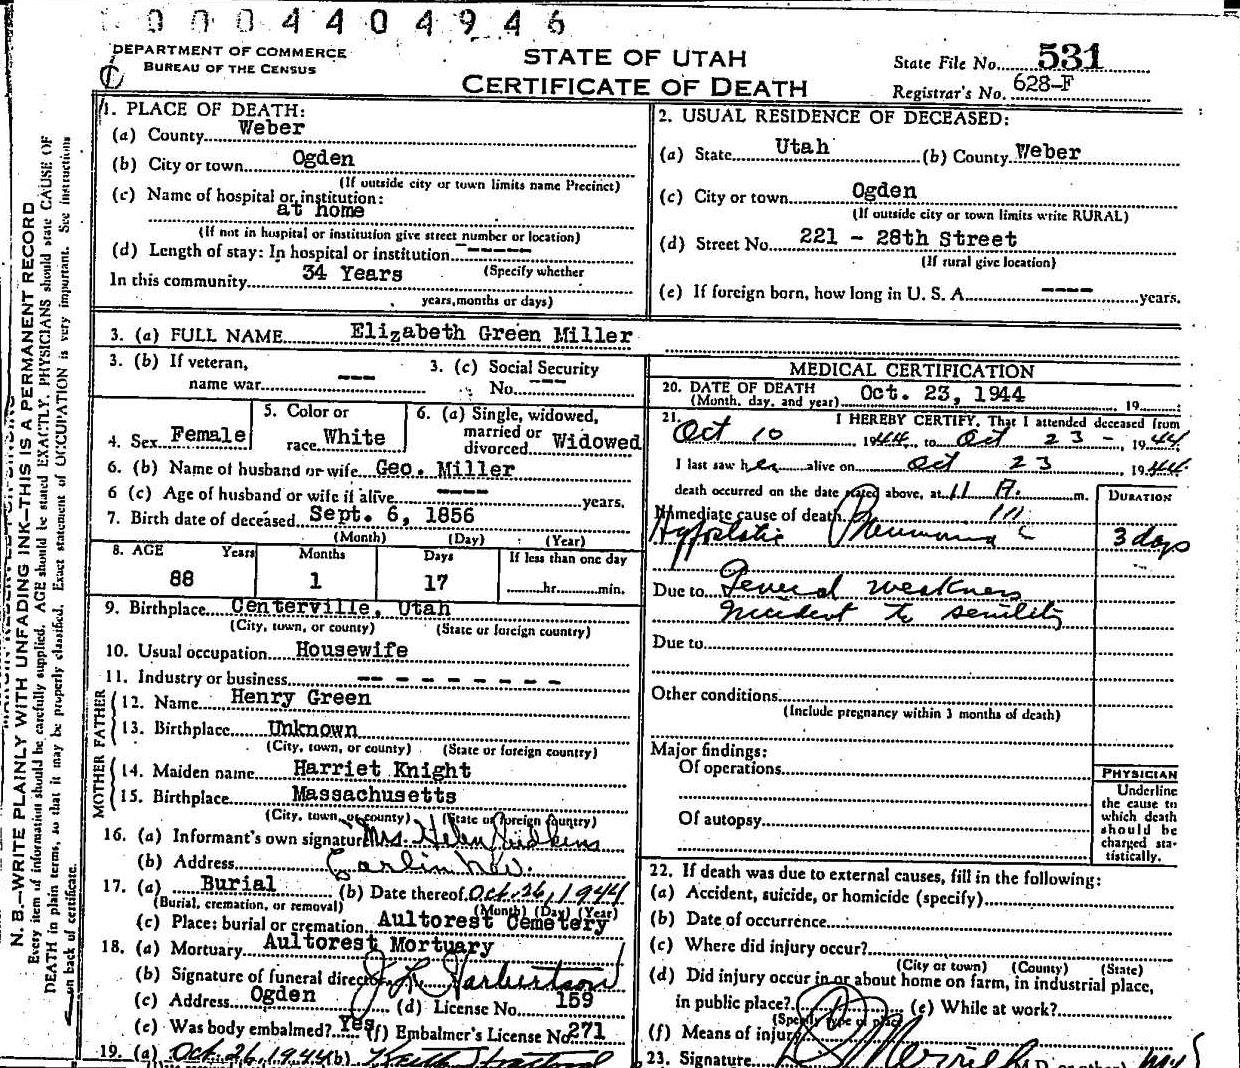 0004404946
DEPARTMENT OF COMMERCE
BUREAU OF THE CENSUS
STATE OF UTAH
CERTIFICATE OF DEATH
State File No. 531
Registrar's No. 628-F
1. PLACE OF DEATH:
(a) County Weber
(b) City or town Ogden
(If outside city or town limits name Precinct)
(c) Name of hospital or institution:
at home
(If not in hospital or institution give street number or location)
(d) Length of stay: In hospital or institution -----
(Specify whether
In this community 34 Years
years, months or days)
2. USUAL RESIDENCE OF DECEASED:
(a) State Utah (b) County Weber
(c) City or town Ogden
(If outside city or town limits write RURAL)
(d) Street No. 221 - 28th Street
(If rural give location)
(e) If foreign born, how long in U. S. A. ---- years.
3. (a) FULL NAME Elizabeth Green Miller
3. (b) If veteran,
name war ---
3. (c) Social Security
No. ---
4. Sex Female
5. Color or
race White
6. (a) Single, widowed,
married or
divorced Widowed
6. (b) Name of husband or wife Geo. Miller
6 (c) Age of husband or wife if alive ---- years.
7. Birth date of deceased Sept. 6, 1856
(Month) (Day) (Year)
8. AGE Years Months Days If less than one day
88 1 17 hr. min.
9. Birthplace Centerville, Utah
(City, town, or county) (State or foreign country)
10. Usual occupation Housewife
11. Industry or business -- - - - - - - -
FATHER
12. Name Henry Green
13. Birthplace Unknown
(City, town, or county) (State or foreign country)
MOTHER
14. Maiden name Harriet Knight
15. Birthplace Massachusetts
(City, town, or county) (State or foreign country)
16. (a) Informant's own signature Mrs. Helen Judkins
(b) Address Carlin Nev.
17. (a) Burial (b) Date thereof Oct. 26, 1944
(Burial, cremation, or removal) (Month) (Day) (Year)
(c) Place: burial or cremation Aultorest Cemetery
18. (a) Mortuary Aultorest Mortuary
(b) Signature of funeral director J L Harbertson
(c) Address Ogden (d) License No. 159
(e) Was body embalmed? Yes (f) Embalmer's License No. 271
19. (a) Oct. 26, 1944 (b) Keith
MEDICAL CERTIFICATION
20. DATE OF DEATH
(Month, day, and year) Oct. 23, 1944 19
21. I HEREBY CERTIFY, That I attended deceased from
Oct 10 1944, to Oct 23 - , 1944
I last saw her alive on Oct 23 1944
death occurred on the date stated above, at 11 A. m.
DURATION
Immediate cause of death
Hypostatic Pneumonia 3 days
Due to General weakness
incident to senility
Due to
Other conditions
(Include pregnancy within 3 months of death)
Major findings:
Of operations
Of autopsy
PHYSICIAN
Underline
the cause to
which death
should be
charged sta-
tistically.
22. If death was due to external causes, fill in the following:
(a) Accident, suicide, or homicide (specify)
(b) Date of occurrence
(c) Where did injury occur?
(City or town) (County) (State)
(d) Did injury occur in or about home on farm, in industrial place,
in public place? (e) While at work?
(Specify type of place)
(f) Means of injury
23. Signature Merrill
N. B.—WRITE PLAINLY WITH UNFADING INK—THIS IS A PERMANENT RECORD
Every item of information should be carefully supplied. AGE should be stated EXACTLY. PHYSICIANS should state CAUSE OF
DEATH in plain terms, so that it may be properly classified. Exact statement of OCCUPATION is very important. See instructions
on back of certificate.